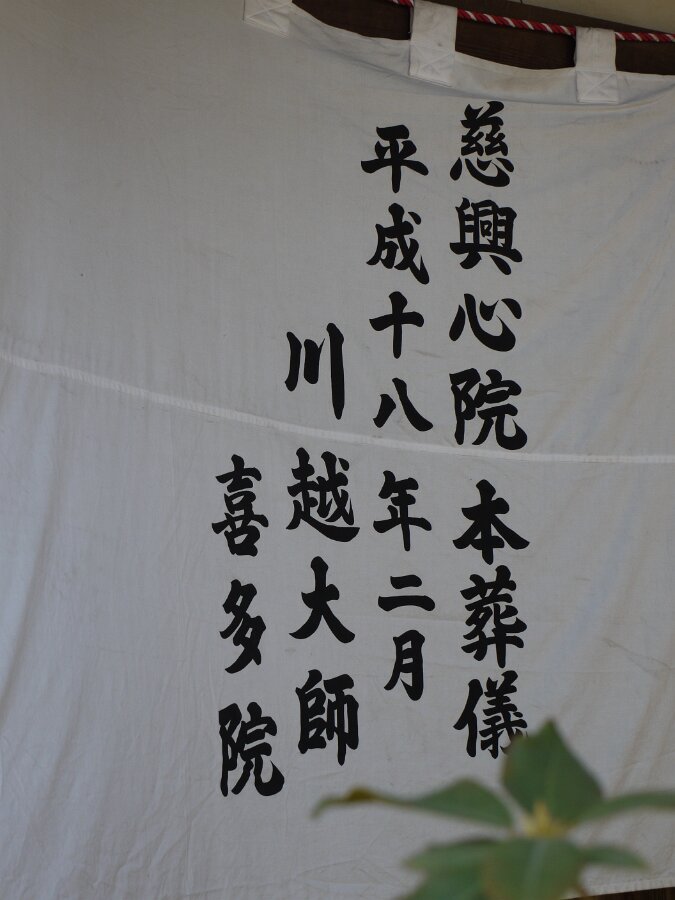 慈興心院 本葬儀
平成十八年二月
川越大師
喜多院